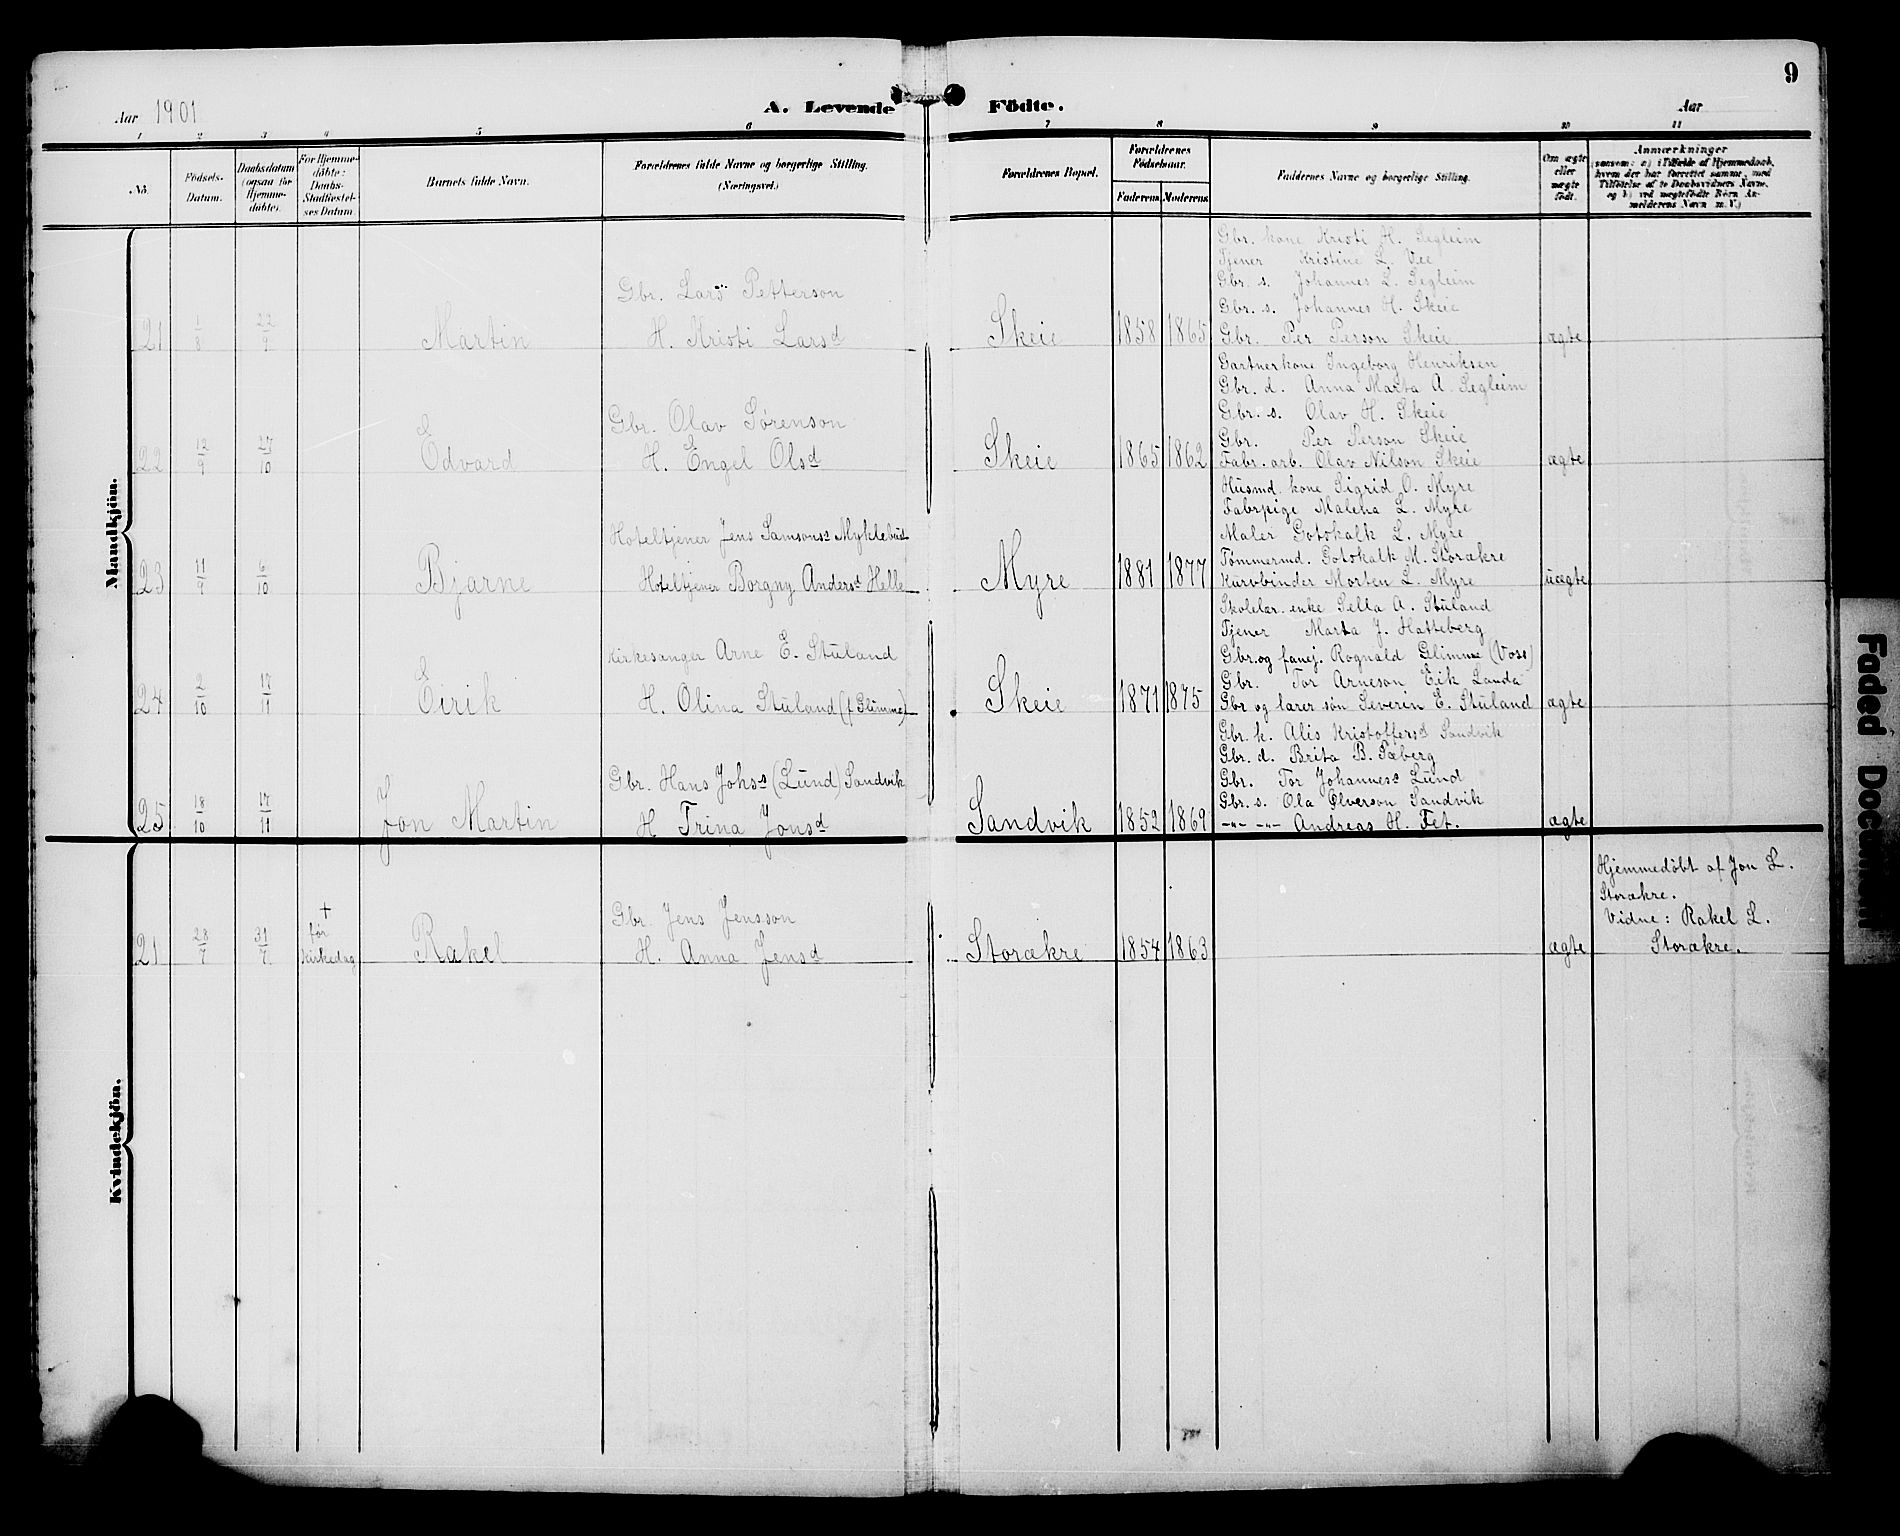 9
Aar 1901
A. Levende Födte.
Aar
1 2 3 4 5 6 7 8 9 10 11
No. Födsels-Datum. Daabsdatum (ogsaa for Hjemme-døbte). For Hjemme-döbte: Daabs-Stadfæstel-ses Datum Barnets fulde Navn. Forældrenes fulde Navne og borgerlige Stilling. (Næringsvei.) Forældrenes Bopæl. Forældrenes Födselsaar. Faderens Moderens Faddernes Navne og borgerlige Stilling. Om ægte eller uægte født. Anmærkninger (saasom: a) i Tilfælde af Hjemmedaab, hvem der har forrettet samme, med Tilföielse af to Daabsvidners Navne, og b) ved uægtefödte Börn An-melderens Navn m. V.)
Mandkjön.
Gbr. kone Kristi H. Segleim
Tjener Kristine L. Vee
Gbr. s. Johannes L. Segleim
Gbr. Lars Petterson
Gbr. s. Johannes H. Skeie
21 1/8 22/9 Martin H. Kristi Larsd Skeie 1858 1865 Gbr. Per Person Skeie ægte
Gartnerkone Ingeborg Henriksen
Gbr. d. Anna Marta A. Segleim
Gbr. Olav Sørenson
Gbr. s. Olav H. Skeie
Gbr. Per Person Skeie
22 12/9 27/10 Edvard H. Engel Olsd Skeie 1865 1862 Fabr. arb. Olav Nilson Skeie ægte
Husmd. kone Sigrid O. Myre
Fabrpige Malena L. Myre
Hoteltjener Jens Samsons Myklebust
Maler Gotskalk L. Myre
Tømmermd. Gotskalk M. Storækre
23 11/7 6/10 Bjarne Hoteltjener Borgny Andersd Helle Myre 1881 1877 Kurvbinder Morten L. Myre uægte
Skolelær. enke Sella A. Stuland
Tjener Marta J. Hatteberg
Kirkesanger Arne E. Stuland
Gbr. og fanej. Rognald Glimme (Voss)
Gbr. Tor Arneson Eik Landa
24 2/10 17/11 Eirik H. Olina Stuland (f Glimme) Skeie 1871 1875 Gbr og lærer søn Severin E. Stuland ægte
Gbr. k. Alis Kristoffersd Sandvik
Gbr. d. Brita B. Sæberg
Gbr. Hans Johss (Lund) Sandvik
Gbr. Tor Johanness Lund
Gbr. s. Ola Elverson Sandvik
25 18/10 17/11 Jon Martin H Trina Jonsd Sandvik 1852 1869 -"- -"- Andreas H. Fet. ægte
Kvindekjön.
Hjemmedöbt af Jon L.
Storækre.
+ før Kirkedag
Gbr. Jens Jensson
Vidne: Rakel L.
21 28/7 31/7 Rakel H. Anna Jensd Storækre 1854 1863 ægte Storækre.
Faded Document